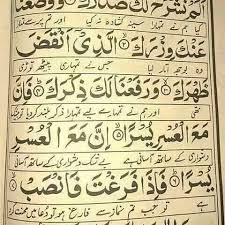 لَمْ نَشْرَحْ لَكَ صَدْرَكَ ۙ وَوَضَعْنَا
کیا ہم نے تمہارا سینہ کشادہ نہ کیا اور تم پر سے
عَنْكَ وِزْرَكَ ۙ﴿۲﴾ الَّذِیْۤ اَنْقَضَ
وہ بوجھ اتار لیا جس نے تمہاری پیٹھ توڑی
ظَهْرَكَ ۙ﴿۳﴾ وَرَفَعْنَا لَكَ ذِكْرَكَ ؕ﴿۴﴾ فَاِنَّ
تھی اور ہم نے تمہارے لیے تمہارا ذکر بلند کر دیا تو
مَعَ الْعُسْرِ یُسْرًا ۙ﴿۵﴾ اِنَّ مَعَ الْعُسْرِ
دشواری کے ساتھ آسانی ہے بے شک دشواری کے ساتھ آسانی
یُسْرًا ؕ﴿۶﴾ فَاِذَا فَرَغْتَ فَانْصَبْ ۙ
ہے تو جب تم نماز سے فارغ ہو تو دعا میں محنت کرو